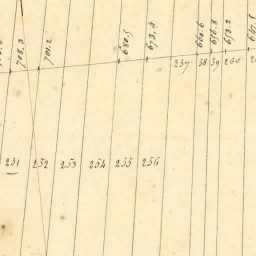 708.3
701.2
680.5
673.4
660.6
656.8
653.2
237 38 39 240
231 232 253 254 255 256